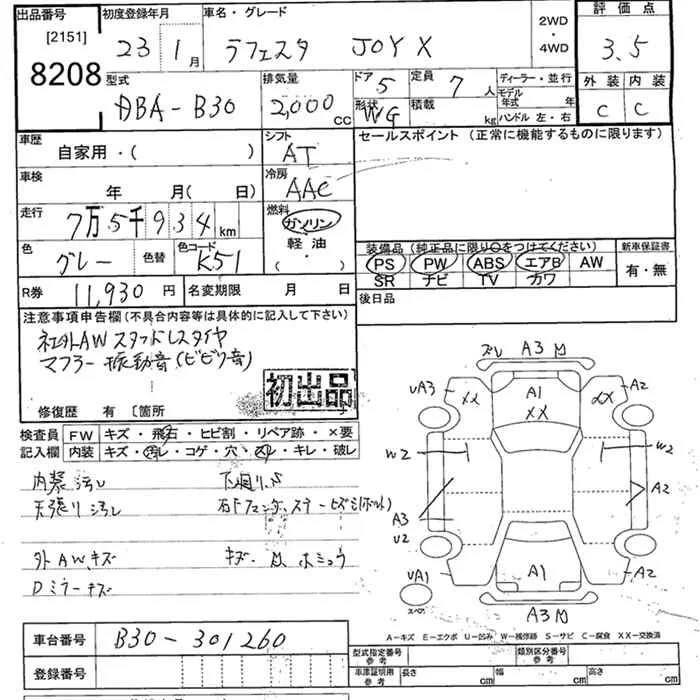 出品番号 初度登録年月 車名・グレード 2WD・4WD 評価点
[2151] 8208 23 1月 ラフェスタ JOY X 3.5
型式 排気量 ドア 5 定員 7人 ディーラー・並行 外装 内装
DBA-B30 2,000cc 形状 WG 積載 kg モデル年式 年 ハンドル 左・右 C C
車歴 自家用・( ) シフト AT セールスポイント (正常に機能するものに限ります)
車検 年 月( 日) 冷房 AAC
走行 7万5千934km 燃料 ガソリン 軽油 ( ・ )
色 グレー 色替 色コード K51 装備品(純正品に限り○をつけてください) 新車保証書
PS PW ABS エアB AW 有・無
SR ナビ TV カワ
R券 11,930円 名変期限 月 日 後日品
注意事項申告欄(不具合内容等は具体的に記入して下さい)
社外AW スタッドレスタイヤ
マフラー振動音(ビビリ音)
初出品
修復歴 有 〔箇所
検査員 FW キズ・飛石・ヒビ割・リペア跡・×要
記入欄 内装 キズ・汚レ・コゲ・穴・スレ・キレ・破レ
内装汚レ
天張り汚レ
外AWキズ
Dミラーキズ
A3
UA3 XX A1 XX XX A2
W2 W2
A3 A2
U2
UA1 A1 A2
スペア
A3
A-キズ E-エクボ U-凹み W-補修跡 S-サビ C-腐食 XX-交換済
車台番号 B30-301260 型式指定番号 参考 類別区分番号 参考
登録番号 車庫証明用 参考 長さ cm 幅 cm 高さ cm